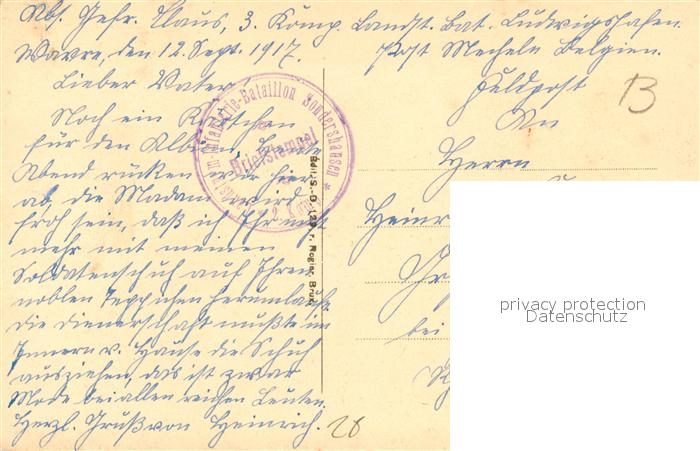 Abs. Gefr. Claus, 3. Komp. Landst. Bat. Ludwigshafen.
Post Mecheln Belgien.
Wavre, den 12. Sept. 1917.
Lieber Vater!
Noch ein Kärtchen
für den Album, heute
Abend rücken wir hier
ab, die Madam wird
froh sein, daß ich Ihr nicht
mehr mit meinen
Soldatenschuh auf Ihren
noblen Teppichen herumlaufe
die Dienerschaft mußte im
Innern v. Hause die Schuh
ausziehen, das ist zwar
Mode bei allen reichen Leuten.
Herzl. Gruß von Heinrich.
Feldpost
An
Herrn
Heinr
bei
B
28
Infanterie-Bataillon Sondershausen
Briefstempel
Edit. S.-D. r. Rogier, Brux.
privacy protection
Datenschutz